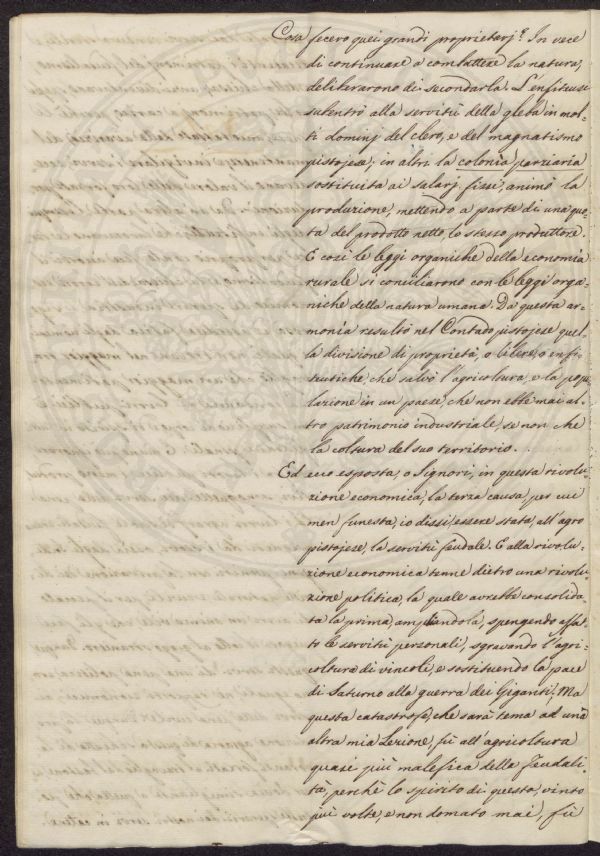 Cosa fecero quei grandi proprietarj? In vece
di continuare a combattere la natura,
deliberarono di secondarla. L'enfiteusi
subentrò alla servitù della gleba in mol-
ti dominj del clero, e del magnatismo
pistojese; in altri la colonia parziaria
sostituita ai salarj fissi, animò la
produzione, mettendo a parte di una quo-
ta del prodotto netto lo stesso produttore.
E così le leggi organiche della economia
rurale si conciliarono con le leggi orga-
niche della natura umana. Da questa ar-
monia resultò nel Contado pistojese quel-
la divisione di proprietà, o libere, o enfi-
teutiche, che salvò l'agricoltura, e la popo-
lazione in un paese, che non ebbe mai al-
tro patrimonio industriale, se non che
la coltura del suo territorio.
Ed ecco esposta, o Signori, in questa rivolu-
zione economica, la terza causa, per cui
men funesta, io dissi, essere stata, all'agro
pistojese, la servitù feudale. E alla rivolu-
zione economica tenne dietro una rivolu-
zione politica, la quale avrebbe consolida-
ta la prima, ampliandola, spengendo affat-
to le servitù personali, sgravando l'agri-
coltura di vincoli, e sostituendo la pace
di Saturno alla guerra dei Giganti. Ma
questa catastrofe, che sarà tema ad una
altra mia Lezione, fù all'agricoltura
quasi più malefica della feudali-
tà, perchè lo spirito di questa, vinto
più volte, e non domato mai, fù